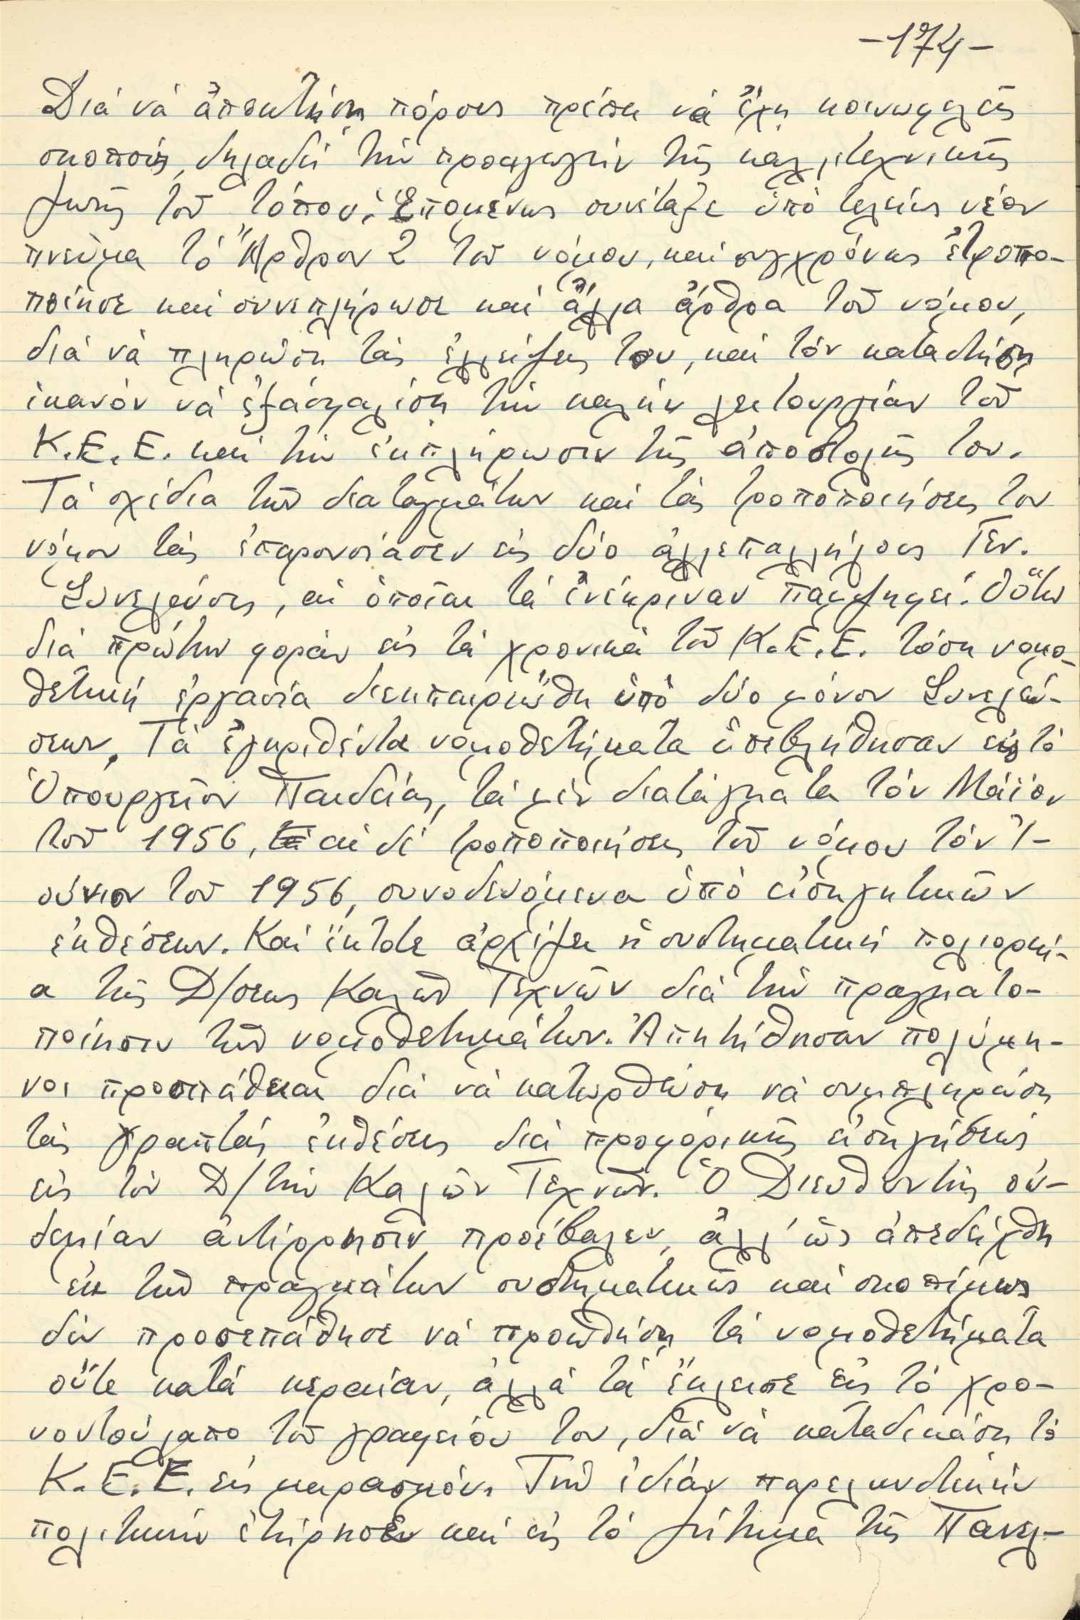 -174-
Διά νά ἀποκτήση πόρους πρέπει νά ἔχη κοινωφελεῖς
σκοπούς, δηλαδή τήν προαγωγήν τῆς καλλιτεχνικῆς
ζωῆς τοῦ τόπου. Ἑπομένως συνέταξε ὑπό τελείως νέον
πνεῦμα τό Ἄρθρον 2 τοῦ νόμου, καί συγχρόνως ἐτροπο-
ποίησε καί συνεπλήρωσε καί ἄλλα ἄρθρα τοῦ νόμου,
διά νά πληρώση τάς ἐλλείψεις του, καί τόν καταστήση
ἱκανόν νά ἐξασφαλίση τήν καλήν λειτουργίαν τοῦ
Κ.Ε.Ε. καί τήν ἐκπλήρωσιν τῆς ἀποστολῆς του.
Τά σχέδια τῶν διαταγμάτων καί τάς τροποποιήσεις του
νόμου τάς ἐπαρουσίασεν εἰς δύο ἀλλεπαλλήλους Γεν.
Συνελεύσεις, αἱ ὁποῖαι τά ἐνέκριναν παμψηφεί. Οὕτω
διά πρώτην φοράν εἰς τά χρονικά τοῦ Κ.Ε.Ε. τόση νομο-
θετική ἐργασία διεκπαιρεώθη ὑπό δύο μόνον Συνελεύ-
σεων. Τά ἐγκριθέντα νομοθετήματα ὑπεβλήθησαν εἰς τό
Ὑπουργεῖον Παιδείας, τά μέν διατάγματα τόν Μάϊον
τοῦ 1956, αἱ δέ τροποποιήσεις τοῦ νόμου τόν Ἰ-
ούνιον τοῦ 1956, συνοδευόμενα ὑπό εἰσηγητικῶν
ἐκθέσεων. Καί ἔκτοτε ἀρχίζει ἡ συστηματική πολιορκί-
α τῆς Δ/σεως Καλῶν Τεχνῶν διά τήν πραγματο-
ποίησιν τῶν νομοθετημάτων. Ἀπητήθησαν πολύμη-
νοι προσπάθειαι διά νά κατορθώση νά συμπληρώση
τάς γραπτάς ἐκθέσεις διά προφορικῆς εἰσηγήσεως
εἰς τόν Δ/τήν Καλῶν Τεχνῶν. Ὁ Διευθυντής οὐ-
δεμίαν ἀντίρρησιν προέβαλεν, ἀλλ' ὡς ἀπεδείχθη
ἐκ τῶν πραγμάτων συστηματικῶς καί σκοπίμως
δέν προσεπάθησε νά προωθήση τά νομοθετήματα
οὔτε κατά κεραίαν, ἀλλά τά ἔκλεισε εἰς τό χρο-
νοντούλαπο τοῦ γραφείου του, διά νά καταδικάση τό
Κ.Ε.Ε. εἰς μαρασμόν. Τήν ἰδίαν παρελκυστικήν
πολιτικήν ἐτήρησεν καί εἰς τό ζήτημα τῆς Πανελ-